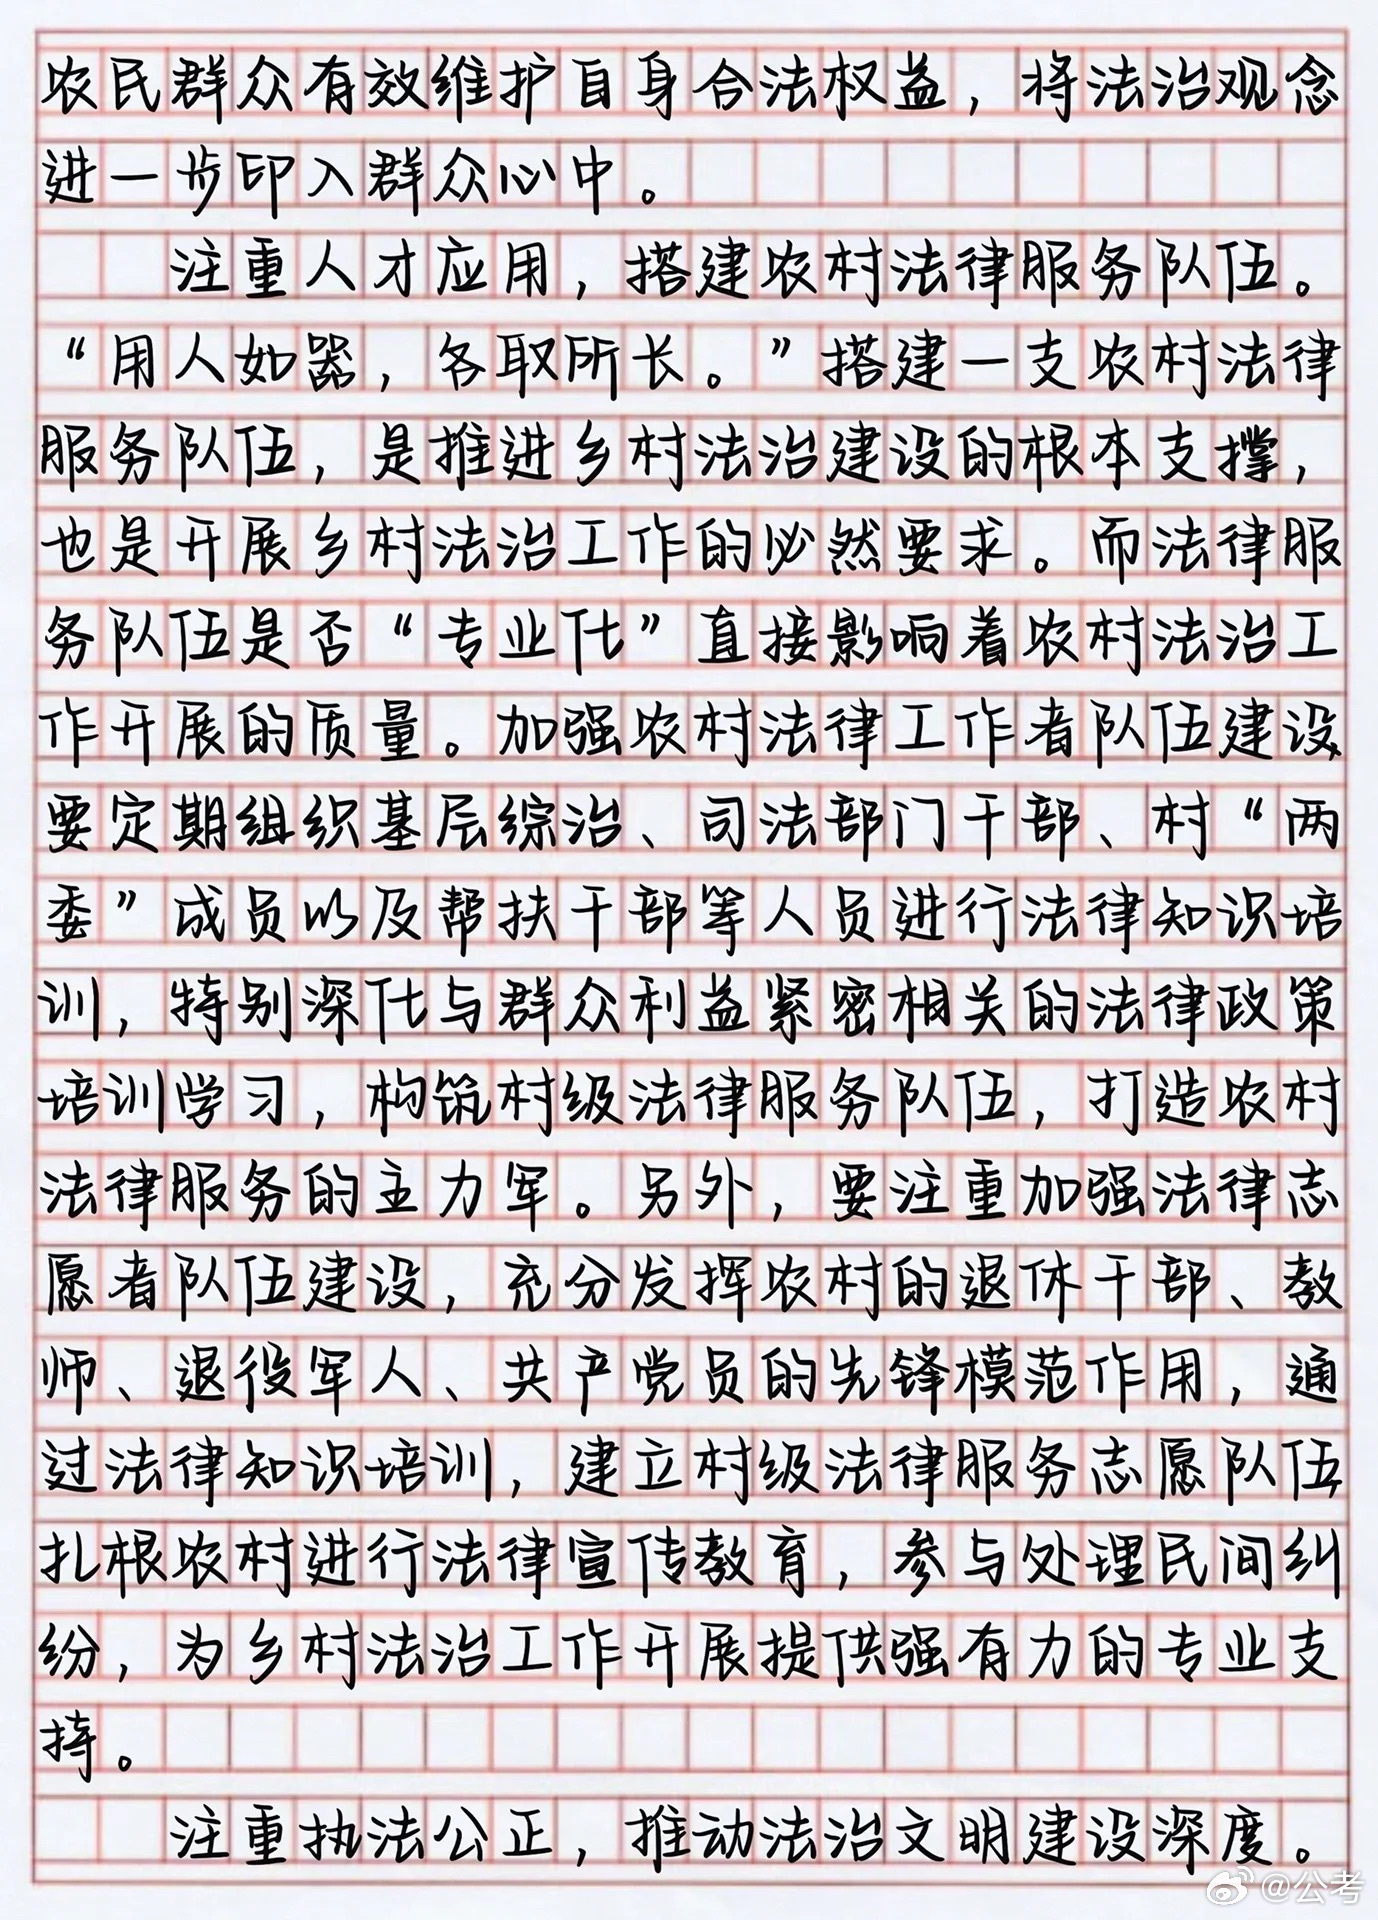 农民群众有效维护自身合法权益，将法治观念
进一步印入群众心中。
注重人才应用，搭建农村法律服务队伍。
“用人如器，各取所长。”搭建一支农村法律
服务队伍，是推进乡村法治建设的根本支撑，
也是开展乡村法治工作的必然要求。而法律服
务队伍是否“专业化”直接影响着农村法治工
作开展的质量。加强农村法律工作者队伍建设，
要定期组织基层综治、司法部门干部、村“两
委”成员以及帮扶干部等人员进行法律知识培
训，特别深化与群众利益紧密相关的法律政策
培训学习，构筑村级法律服务队伍，打造农村
法律服务的主力军。另外，要注重加强法律志
愿者队伍建设，充分发挥农村的退休干部、教
师、退役军人、共产党员的先锋模范作用，通
过法律知识培训，建立村级法律服务志愿队伍，
扎根农村进行法律宣传教育，参与处理民间纠
纷，为乡村法治工作开展提供强有力的专业支
持。
注重执法公正，推动法治文明建设深度。
@公考